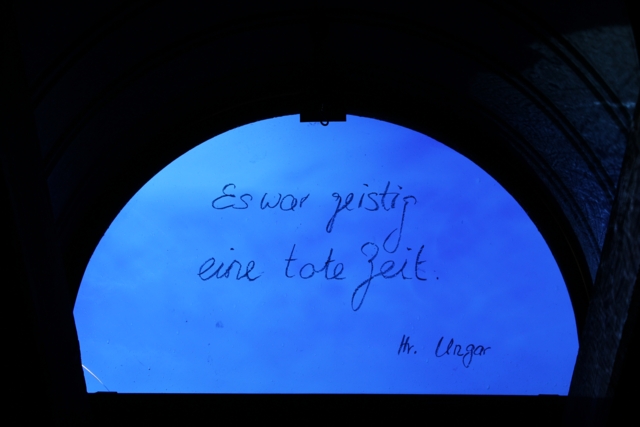 Es war geistig
eine tote Zeit.
Hr. Ungar